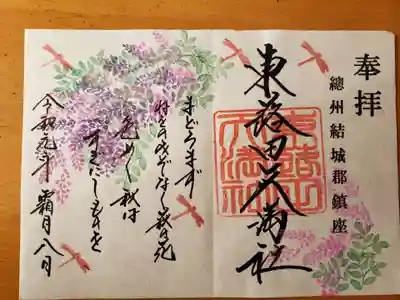 奉拝
總州結城郡鎮座
東蕗田天満社
まどろまず
ねをのみぞなく萩の花
色めく秋は
すぎにしものを
令和元年 霜月八日